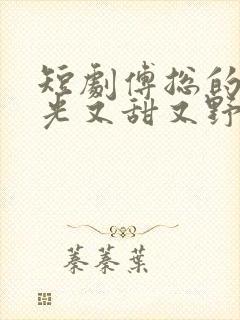 短劇傅总的
光又甜又野
蓁蓁葉